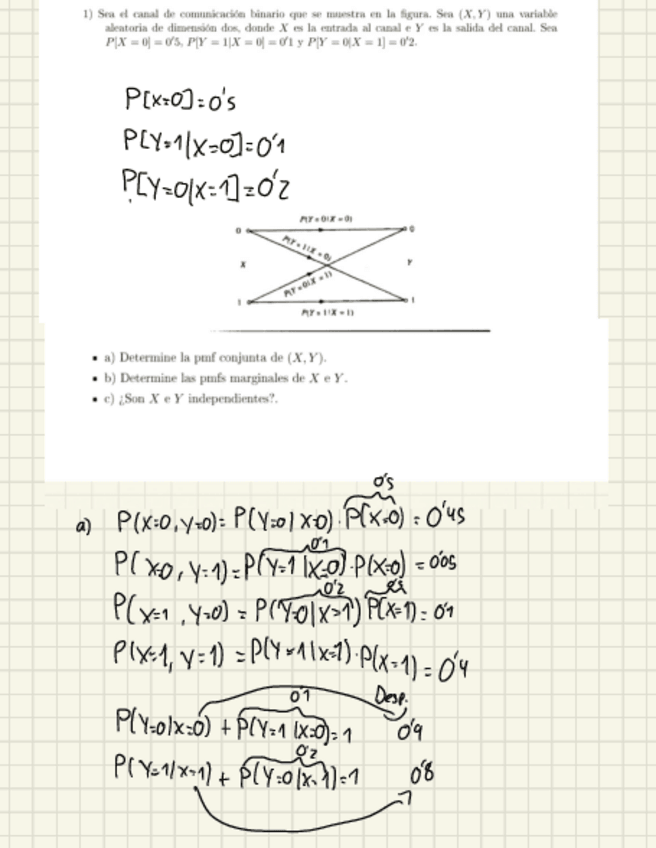 1) Sea el canal de comunicación binario que se muestra en la figura. Sea (X, Y) una variable
aleatoria de dimensión dos, donde X es la entrada al canal e Y es la salida del canal. Sea
P[X = 0] = 0'5, P[Y = 1|X = 0] = 0'1 y P[Y = 0|X = 1] = 0'2.
P[X=0]=0's
P[Y=1|X=0]=0'1
P[Y=0|X=1]=0'2
P(Y = 0|X = 0)
0 0
P(Y = 1|X = 0)
X Y
P(Y = 0|X = 1)
1 1
P(Y = 1|X = 1)
▪ a) Determine la pmf conjunta de (X, Y).
▪ b) Determine las pmfs marginales de X e Y.
▪ c) ¿Son X e Y independientes?.
0's
a) P(X=0, Y=0)= P(Y=0|X=0) · P(X=0) = 0'45
0'1
P(X=0, Y=1)=P(Y=1|X=0)·P(X=0) = 0'05
0'2
P(X=1, Y=0) = P(Y=0|X=1) P(X=1)= 0'1
P(X=1, Y=1) = P(Y=1|X=1)·P(X=1) = 0'4
0'1 Desp.
P(Y=0|X=0) + P(Y=1|X=0)=1 0'9
0'2
P(Y=1/X=1) + P(Y=0|X=1)=1 0'8